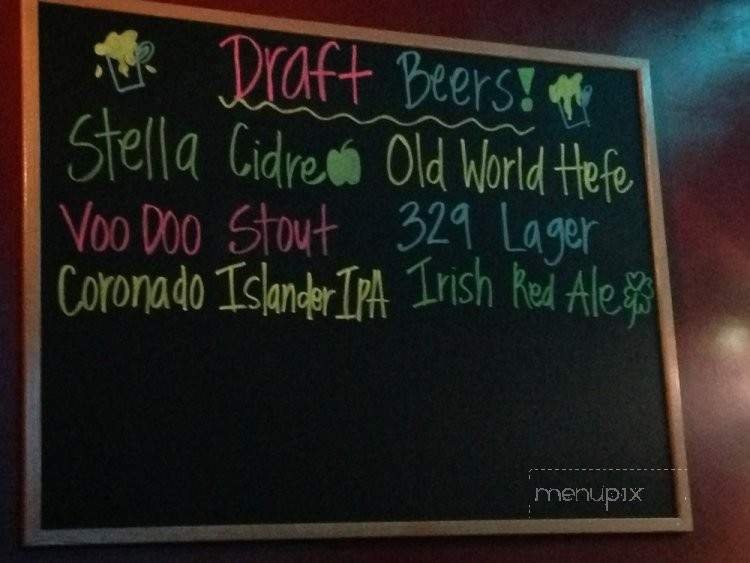 Draft Beers!
Stella Cidre Old World Hefe
VooDoo Stout 329 Lager
Coronado Islander IPA Irish Red Ale
menupix